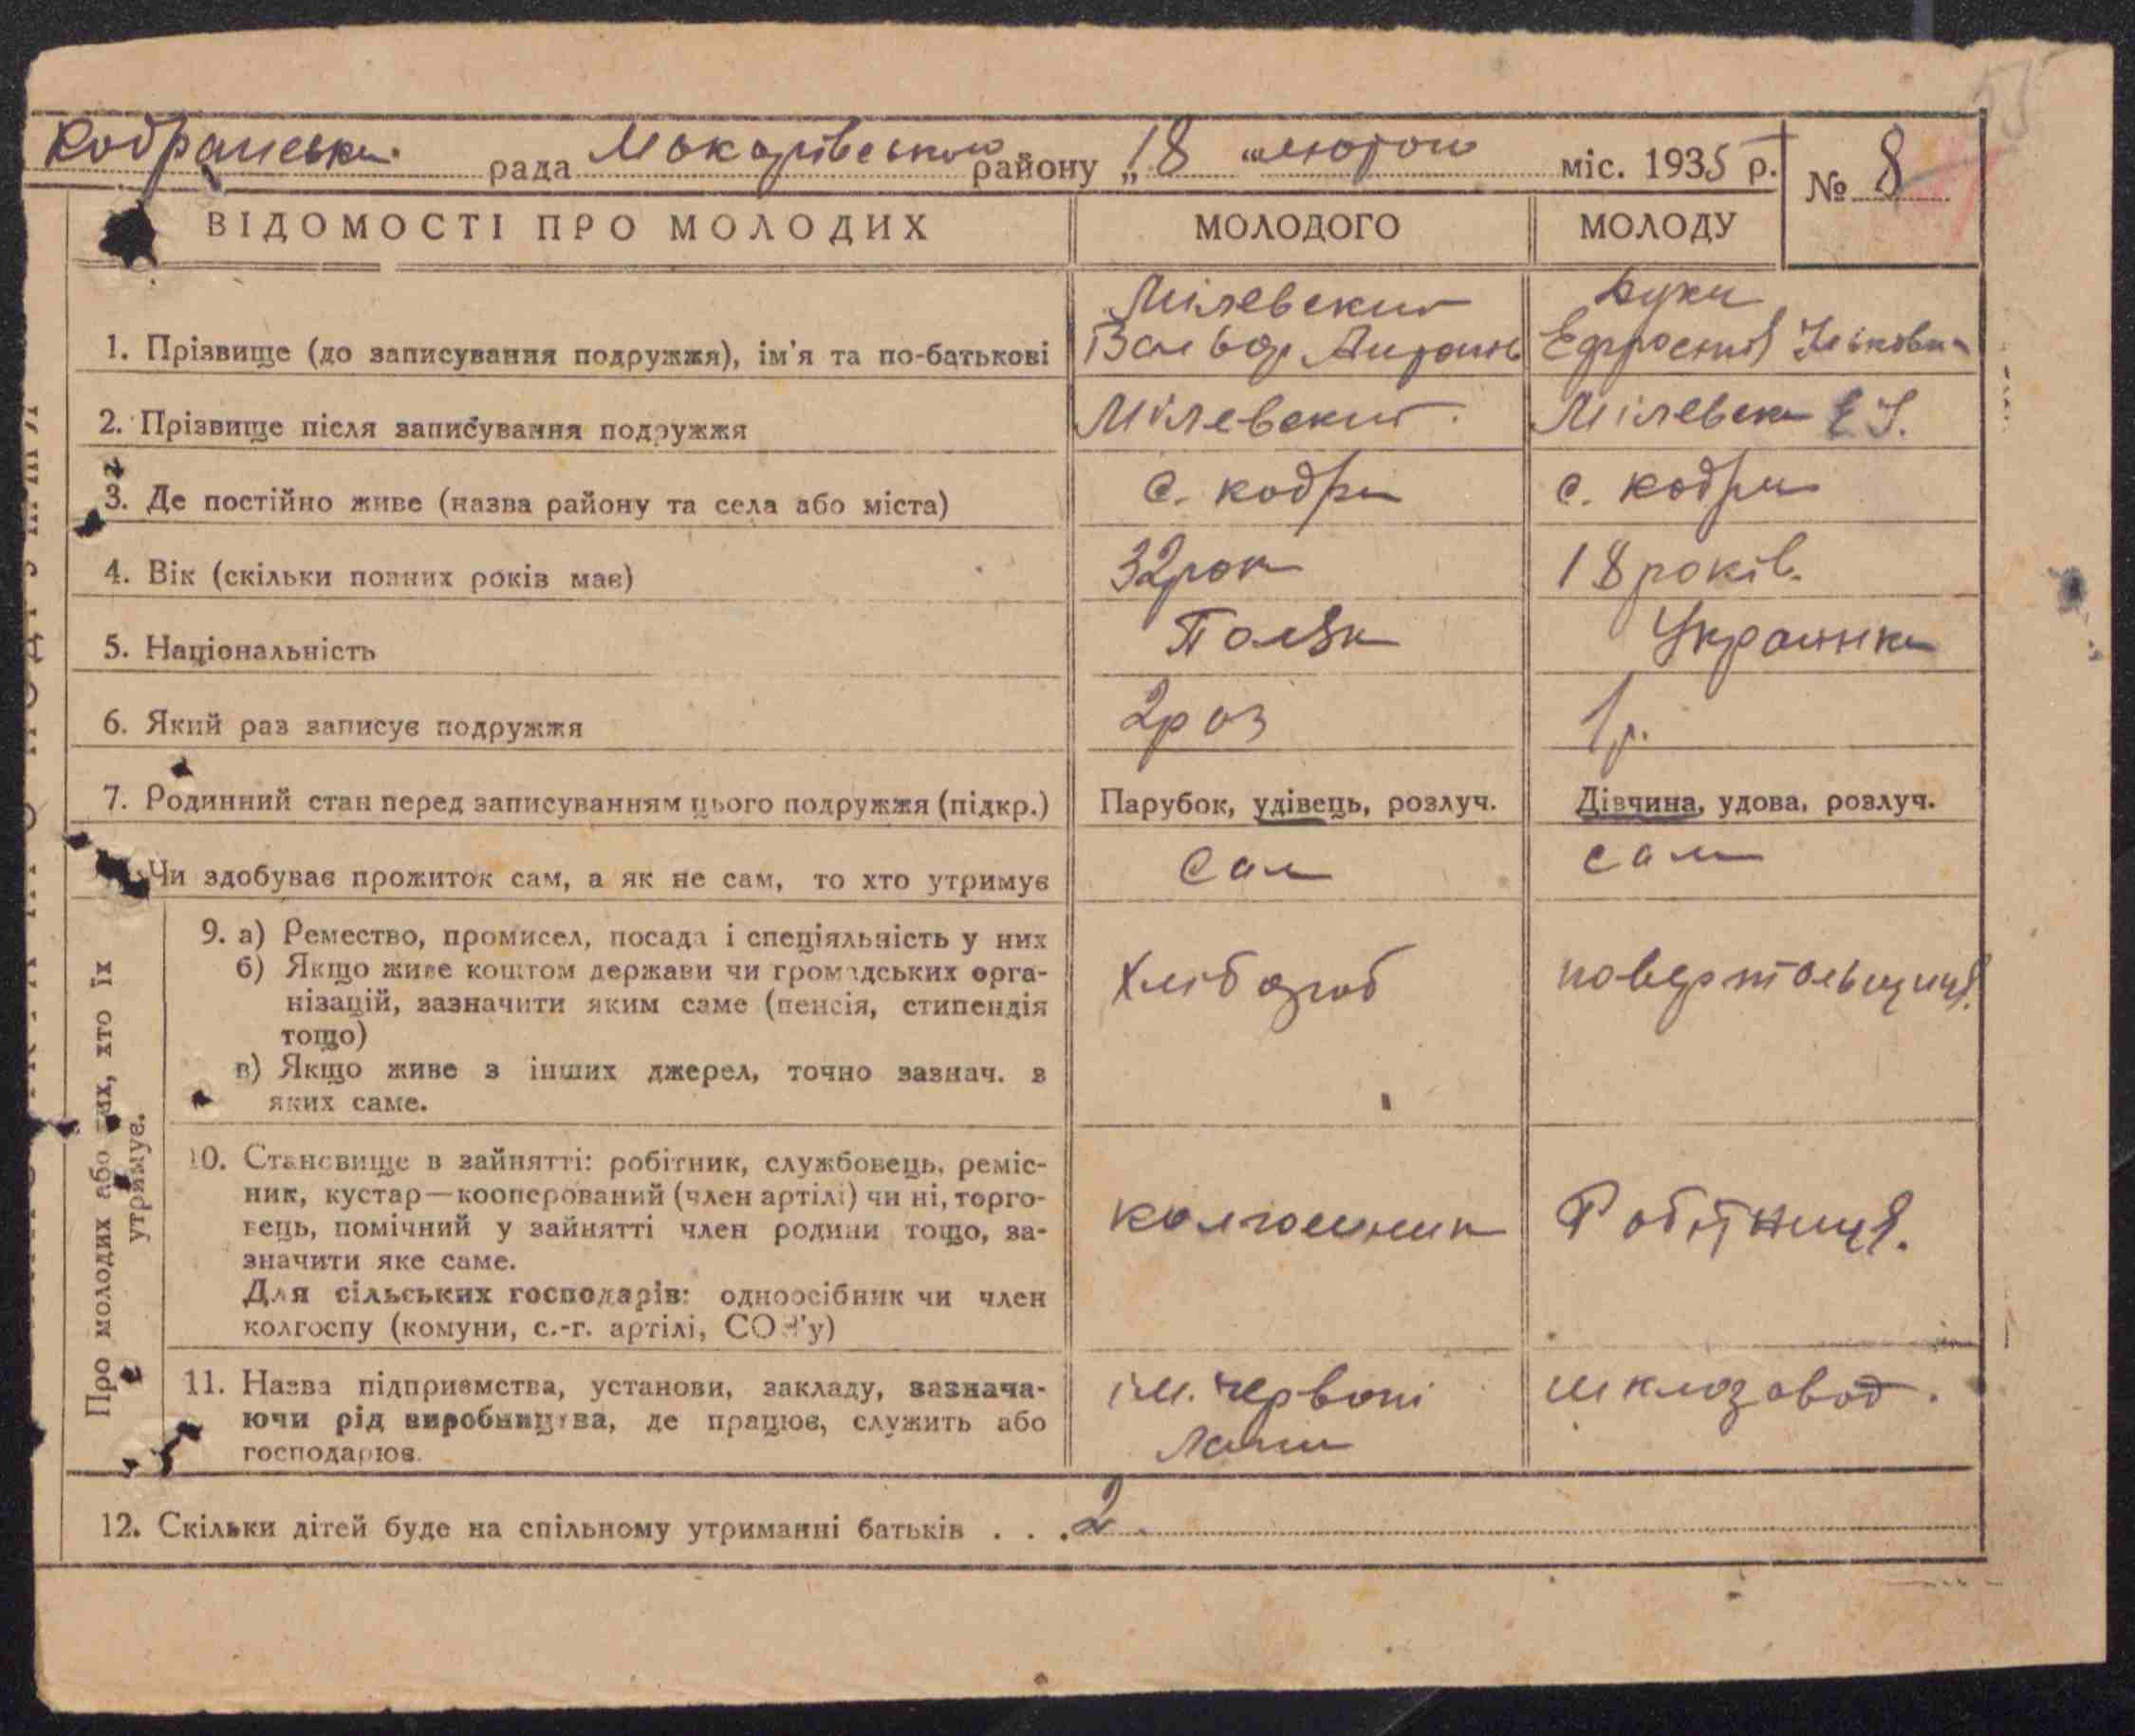 Кодранська рада Макарівського району „18 “ лютого міс. 1935 р. № 8
ВІДОМОСТІ ПРО МОЛОДИХ МОЛОДОГО МОЛОДУ
Мілевский Буки
1. Прізвище (до записування подружжя), ім'я та по-батькові Ефросинія
2. Прізвище після записування подружжя Мілевский. Мілевска Е І.
3. Де постійно живе (назва району та села або міста) с. кодри с. кодри
4. Вік (скільки повних років має) 32 рок 18 років.
5. Національність Поляк Украинка
6. Який раз записує подружжя 2 раз 1 р.
7. Родинний стан перед записуванням цього подружжя (підкр.) Парубок, удівець, розлуч. Дівчина, удова, розлуч.
Чи здобуває прожиток сам, а як не сам, то хто утримує Сам сама
Про молодих або тих, хто їх
утримує.
9. а) Ремество, промисел, посада і спеціяльність у них
б) Якщо живе коштом держави чи громадських орга-
нізацій, зазначити яким саме (пенсія, стипендія хлібороб
тощо)
в) Якщо живе з інших джерел, точно зазнач. з
яких саме.
10. Становище в зайнятті: робітник, службовець, реміс-
ник, кустар—кооперований (член артілі) чи ні, торго-
вець, помічний у зайнятті член родини тощо, за- колгосник Робітниця.
значити яке саме.
Для сільських господарів: одноосібник чи член
колгоспу (комуни, с.-г. артілі, СОЗ'у)
11. Назва підприємства, установи, закладу, зазнача- ім. червоні шклозавод.
ючи рід виробництва, де працює, служить або лани
господарює.
12. Скільки дітей буде на спільному утриманні батьків . . . 2